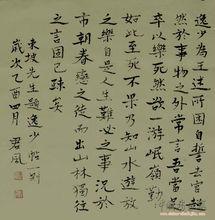 逸少為王述所困自誓去官超
然於事物之外常自言吾當
卒以樂死然欲一游岷嶺勤
勤如此而至死不果乃知山水遊放
之樂自是人生難必之事況於
市朝眷戀之徒而出山林獨往
之言固已疎矣
東坡先生題逸少帖一則
歲次乙酉四月 君風